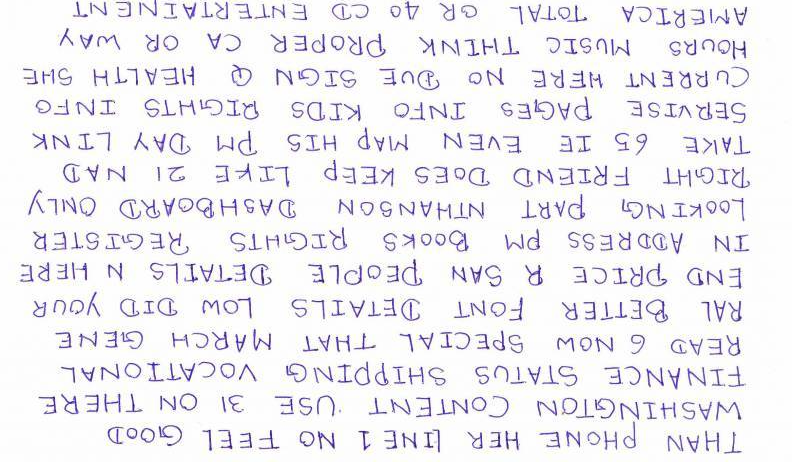 THAN PHONE HER LINE 1 NO FEEL GOOD
WASHINGTON CONTENT USE 31 ON THERE
FINANCE STATUS SHIPPING VOCATIONAL
READ 6 NOW SPECIAL THAT MARCH GENE
RAL BETTER FONT DETAILS LOW DID YOUR
END PRICE R SAN PEOPLE DETAILS N HERE
IN ADDRESS PM BOOKS RIGHTS REGISTER
LOOKING PART NTHANSON DASHBOARD ONLY
RIGHT FRIEND DOES KEEP LIKE 21 NAD
TAKE 65 IE EVEN MAP HIS PM DAY LINK
SERVISE PAGES INFO KIDS RIGHTS INFO
CURRENT HERE NO DUE SIGN Q HEALTH SHE
HOURS MUSIC THINK PROPER CA OR WAY
AMERICA TOTAL GR 40 CD ENTERTAINENT